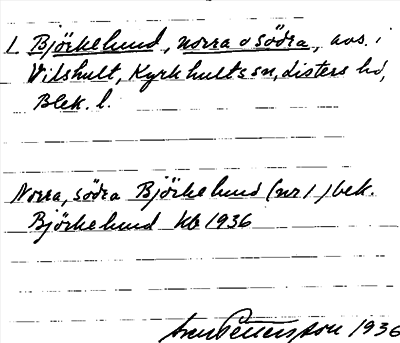 1 Björkelund, norra o södra, avs. i
Vilshult, Kyrkhults sn, Listers hd,
Blek. l.
Norra, södra Björkelund (nr 1) bek.
Björkelund Kb 1936
Sven Benson 1936